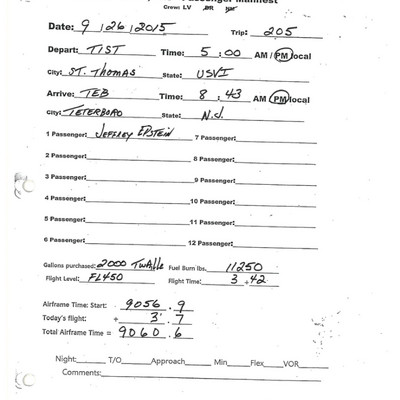 Passenger Manifest
Crew: LV BR NW
Date: 9 / 26 / 2015 Trip: 205
Depart: TIST Time: 5 : 00 AM / PM local
City: ST. THOMAS State: USVI
Arrive: TEB Time: 8 : 43 AM PM local
City: TETERBORO State: N.J.
1 Passenger: JEFFREY EPSTEIN 7 Passenger:
2 Passenger: 8 Passenger:
3 Passenger: 9 Passenger:
4 Passenger: 10 Passenger:
5 Passenger: 11 Passenger:
6 Passenger: 12 Passenger:
Gallons purchased: 2000 Fuel Burn lbs. 11250
Flight Level: FL450 Flight Time: 3 + 42
Airframe Time: Start: 9056 . 9
Today's flight: + 3 . 7
Total Airframe Time = 9060 . 6
Night: T/O Approach Min Flex VOR
Comments: